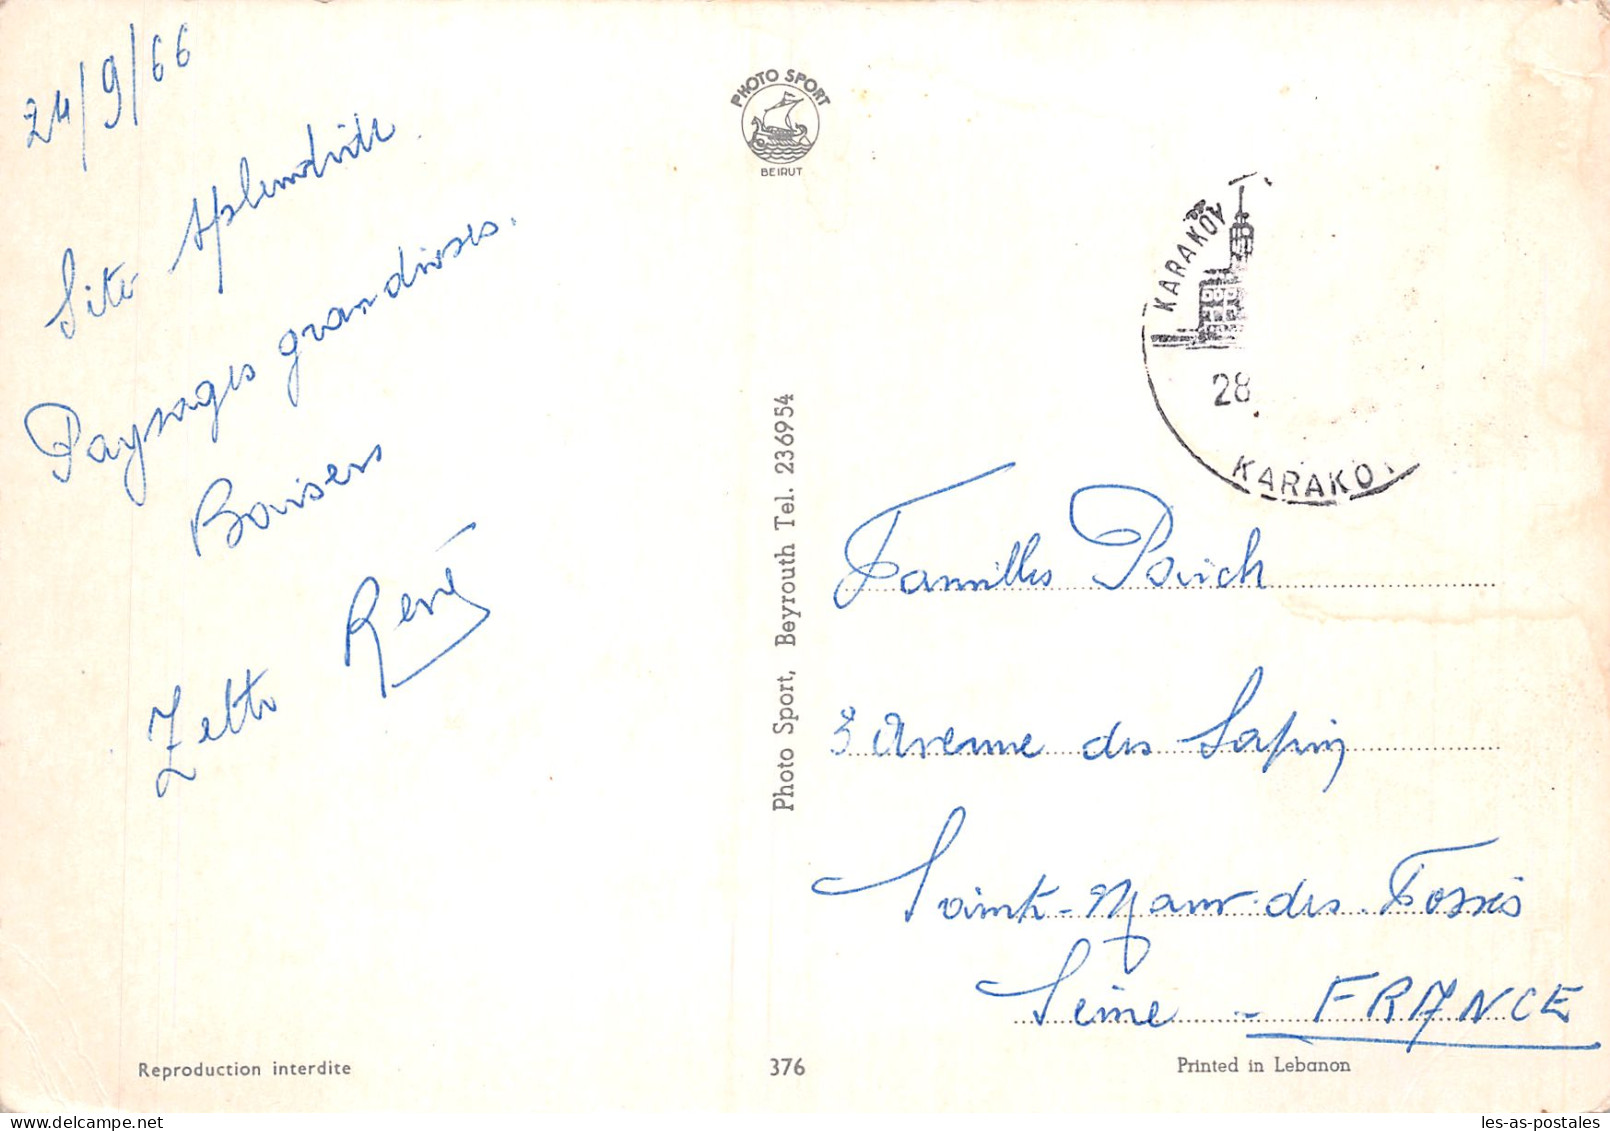 24/9/66
Site splendide.
Paysages grandioses.
Baisers
René
PHOTO SPORT
BEIRUT
Photo Sport, Beyrouth Tel. 236954
KARAKÖY
28
KARAKO
Familles
3 Avenue des Sapins
Saint-Maur-des-Fossés
Seine - FRANCE
Reproduction interdite
376
Printed in Lebanon
les-as-postales